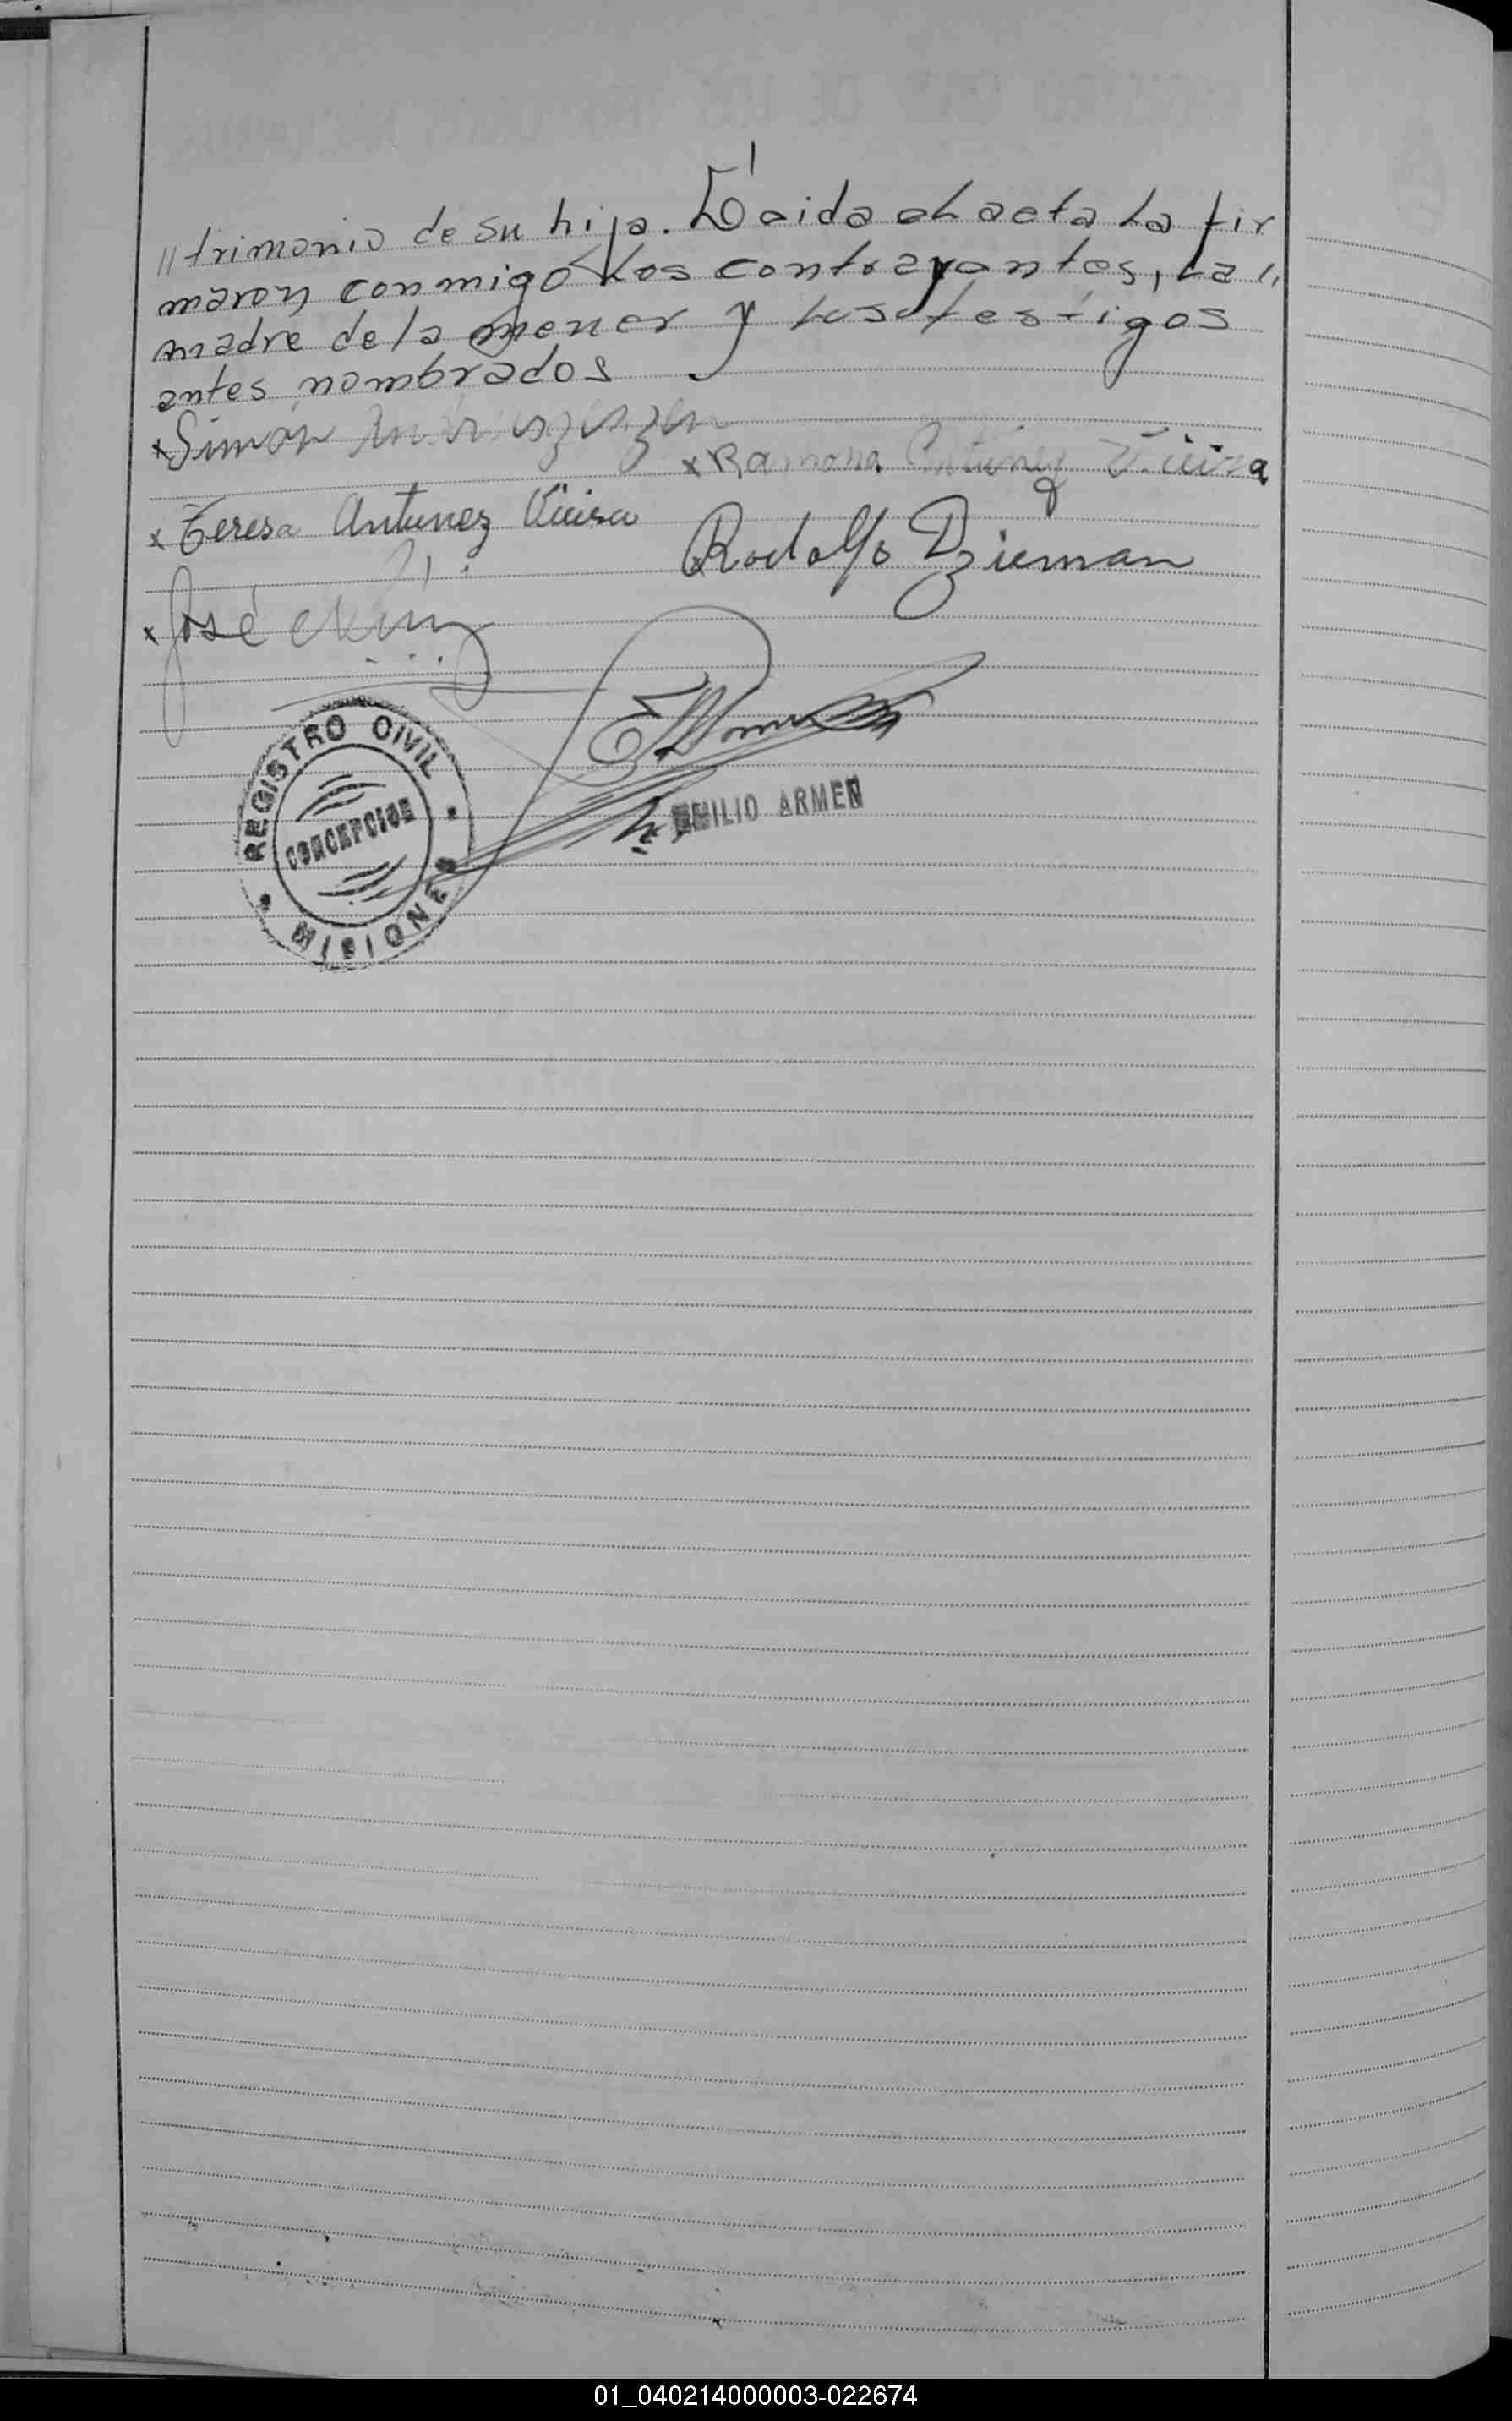 // trimonio de su hija. Léida el acta la fir
maron conmigo los contrayentes, la //
madre de la menor y los testigos
antes nombrados
x Simón
x Ramona Antunez Vieira
x Teresa Antunez Vieira
Rodolfo Dzieman
x José
REGISTRO CIVIL
CONCEPCION
MISIONES
EMILIO ARMER
01_040214000003-022674